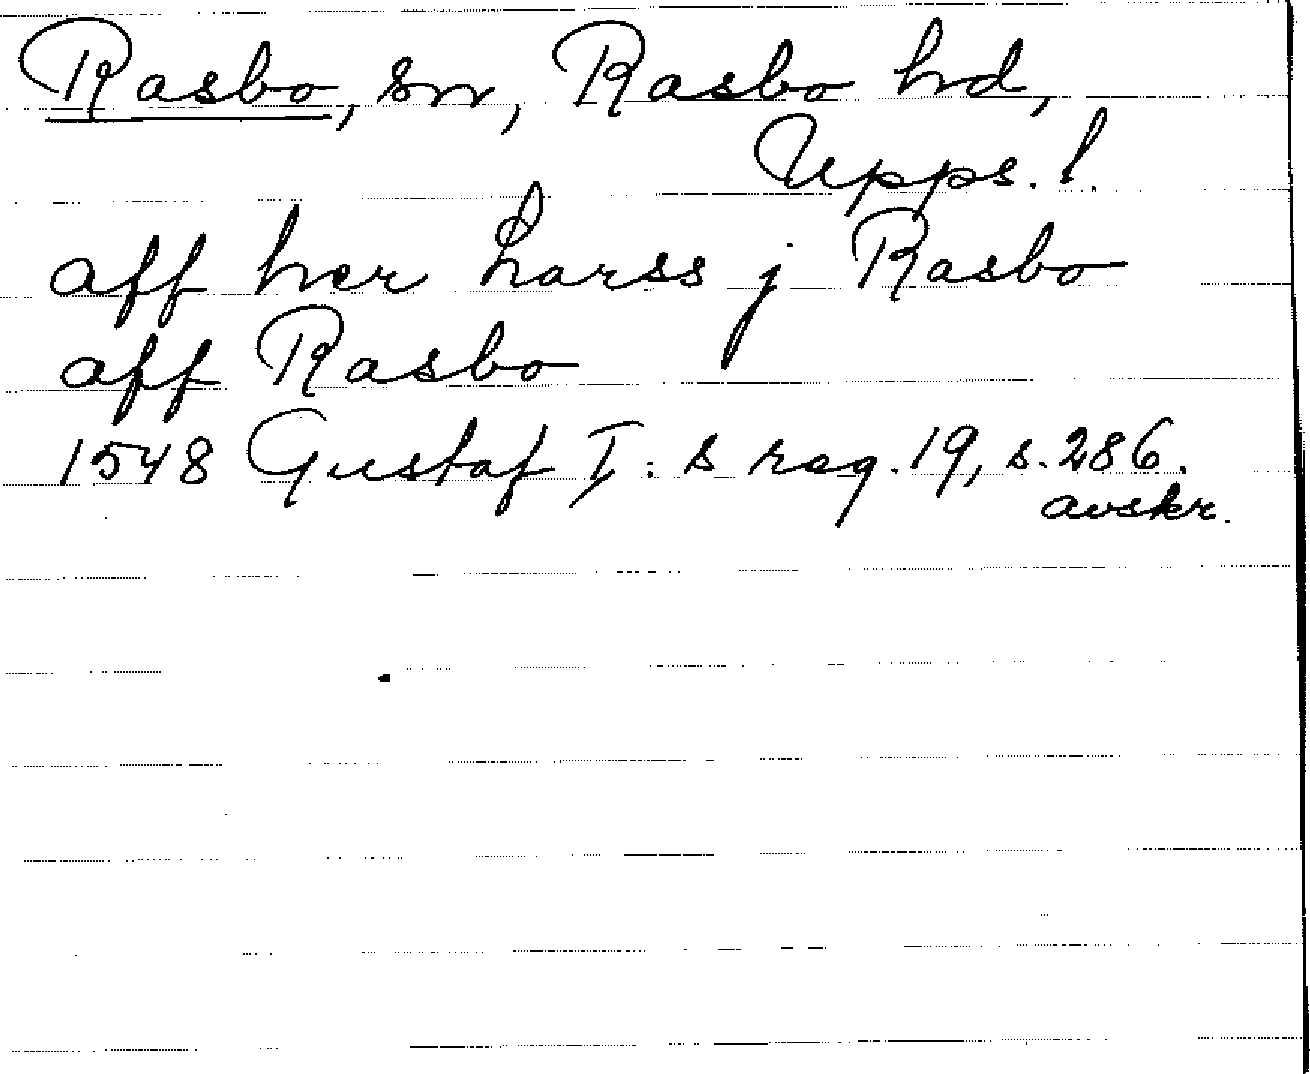 Rasbo, sn, Rasbo hd,
Upps. l.
aff her Larss j Rasbo
aff Rasbo
1548 Gustaf I: s reg. 19, s. 286.
avskr.